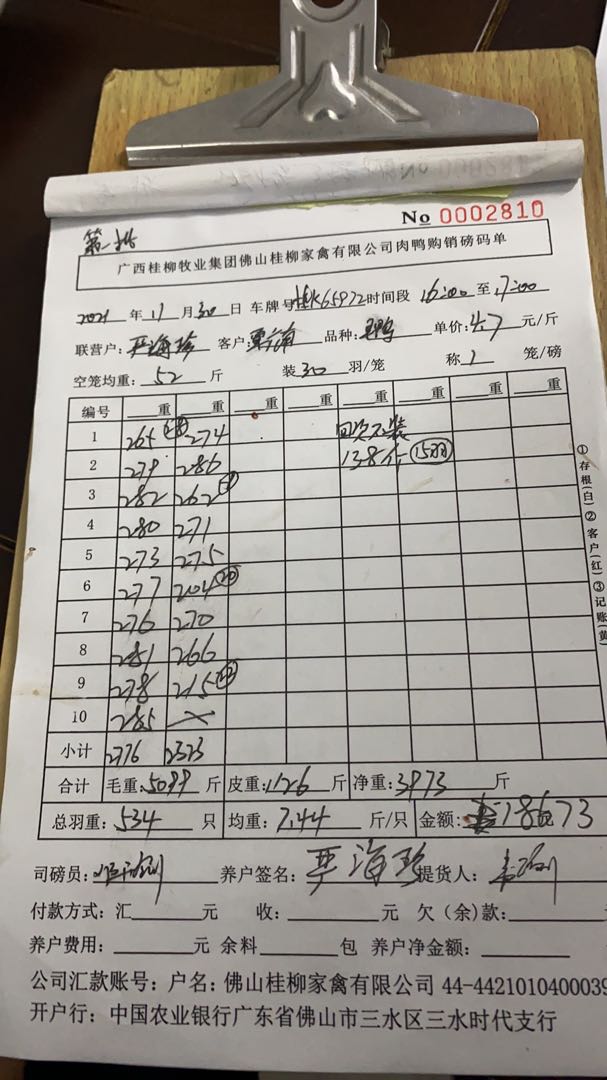 No 0002810
第一批
广西桂柳牧业集团佛山桂柳家禽有限公司肉鸭购销磅码单
2021 年 11 月 30 日 车牌号 K65972 时间段 16:00 至 17:00
联营户: 严海珍 客户: 品种: 鸭 单价: 4.7 元/斤
空笼均重: 52 斤 装 30 羽/笼 称 1 笼/磅
编号 重 重 重 重 重 重 重 重
1 265 28 274
2 279 286 138个
3 282 262
4 280 271
5 273 275
6 277 204 20
7 276 270
8 281 266
9 278 215
10 285
小计 2776 2323
合计 毛重: 5099 斤 皮重: 1126 斤 净重: 3973 斤
总羽重: 534 只 均重: 7.44 斤/只 金额: 18673
司磅员: 养户签名: 严海珍 提货人:
付款方式: 汇 元 收: 元 欠(余)款:
养户费用: 元 余料 包 养户净金额:
公司汇款账号: 户名: 佛山桂柳家禽有限公司 44-4421010400039
开户行: 中国农业银行广东省佛山市三水区三水时代支行
①存根(白)②客户(红)③记账(黄)